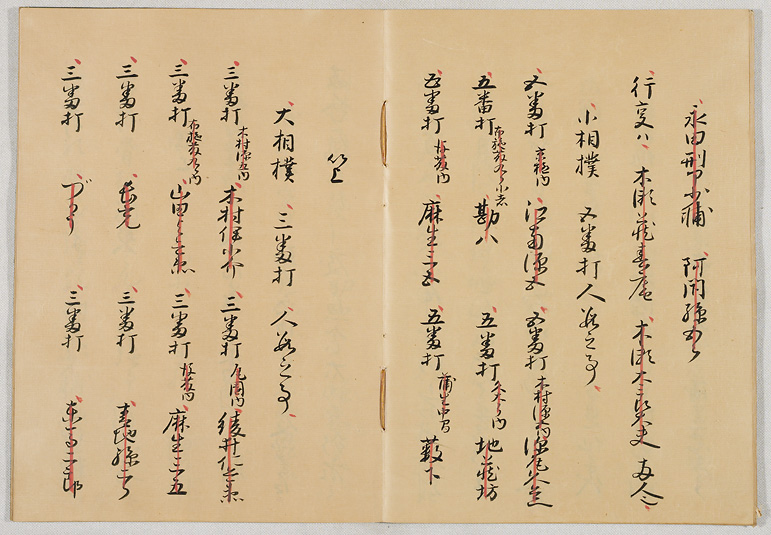 永田刑部少輔 阿閉孫五郎
行事ハ、木瀬蔵春庵 木瀬太郎大夫 両人
小相撲 五番打人数之事、
五番打 京極内 江南源五 五番打 木村源五内 深尾久兵衛
五番打 布施藤九郎小者 勘八 五番打 久太郎内 地蔵坊
五番打 後藤内 麻生三五 五番打 蒲生中間 藪下
以上
大相撲 三番打 人数之事、
三番打 木村源五内 木村伊小介 三番打 瓦園内 綾井二兵衛
三番打 布施藤九郎内 山田与兵衛 三番打 後藤内 麻生三五
三番打 長光 三番打 青地孫二郎
三番打 づこう 三番打 東馬二郎